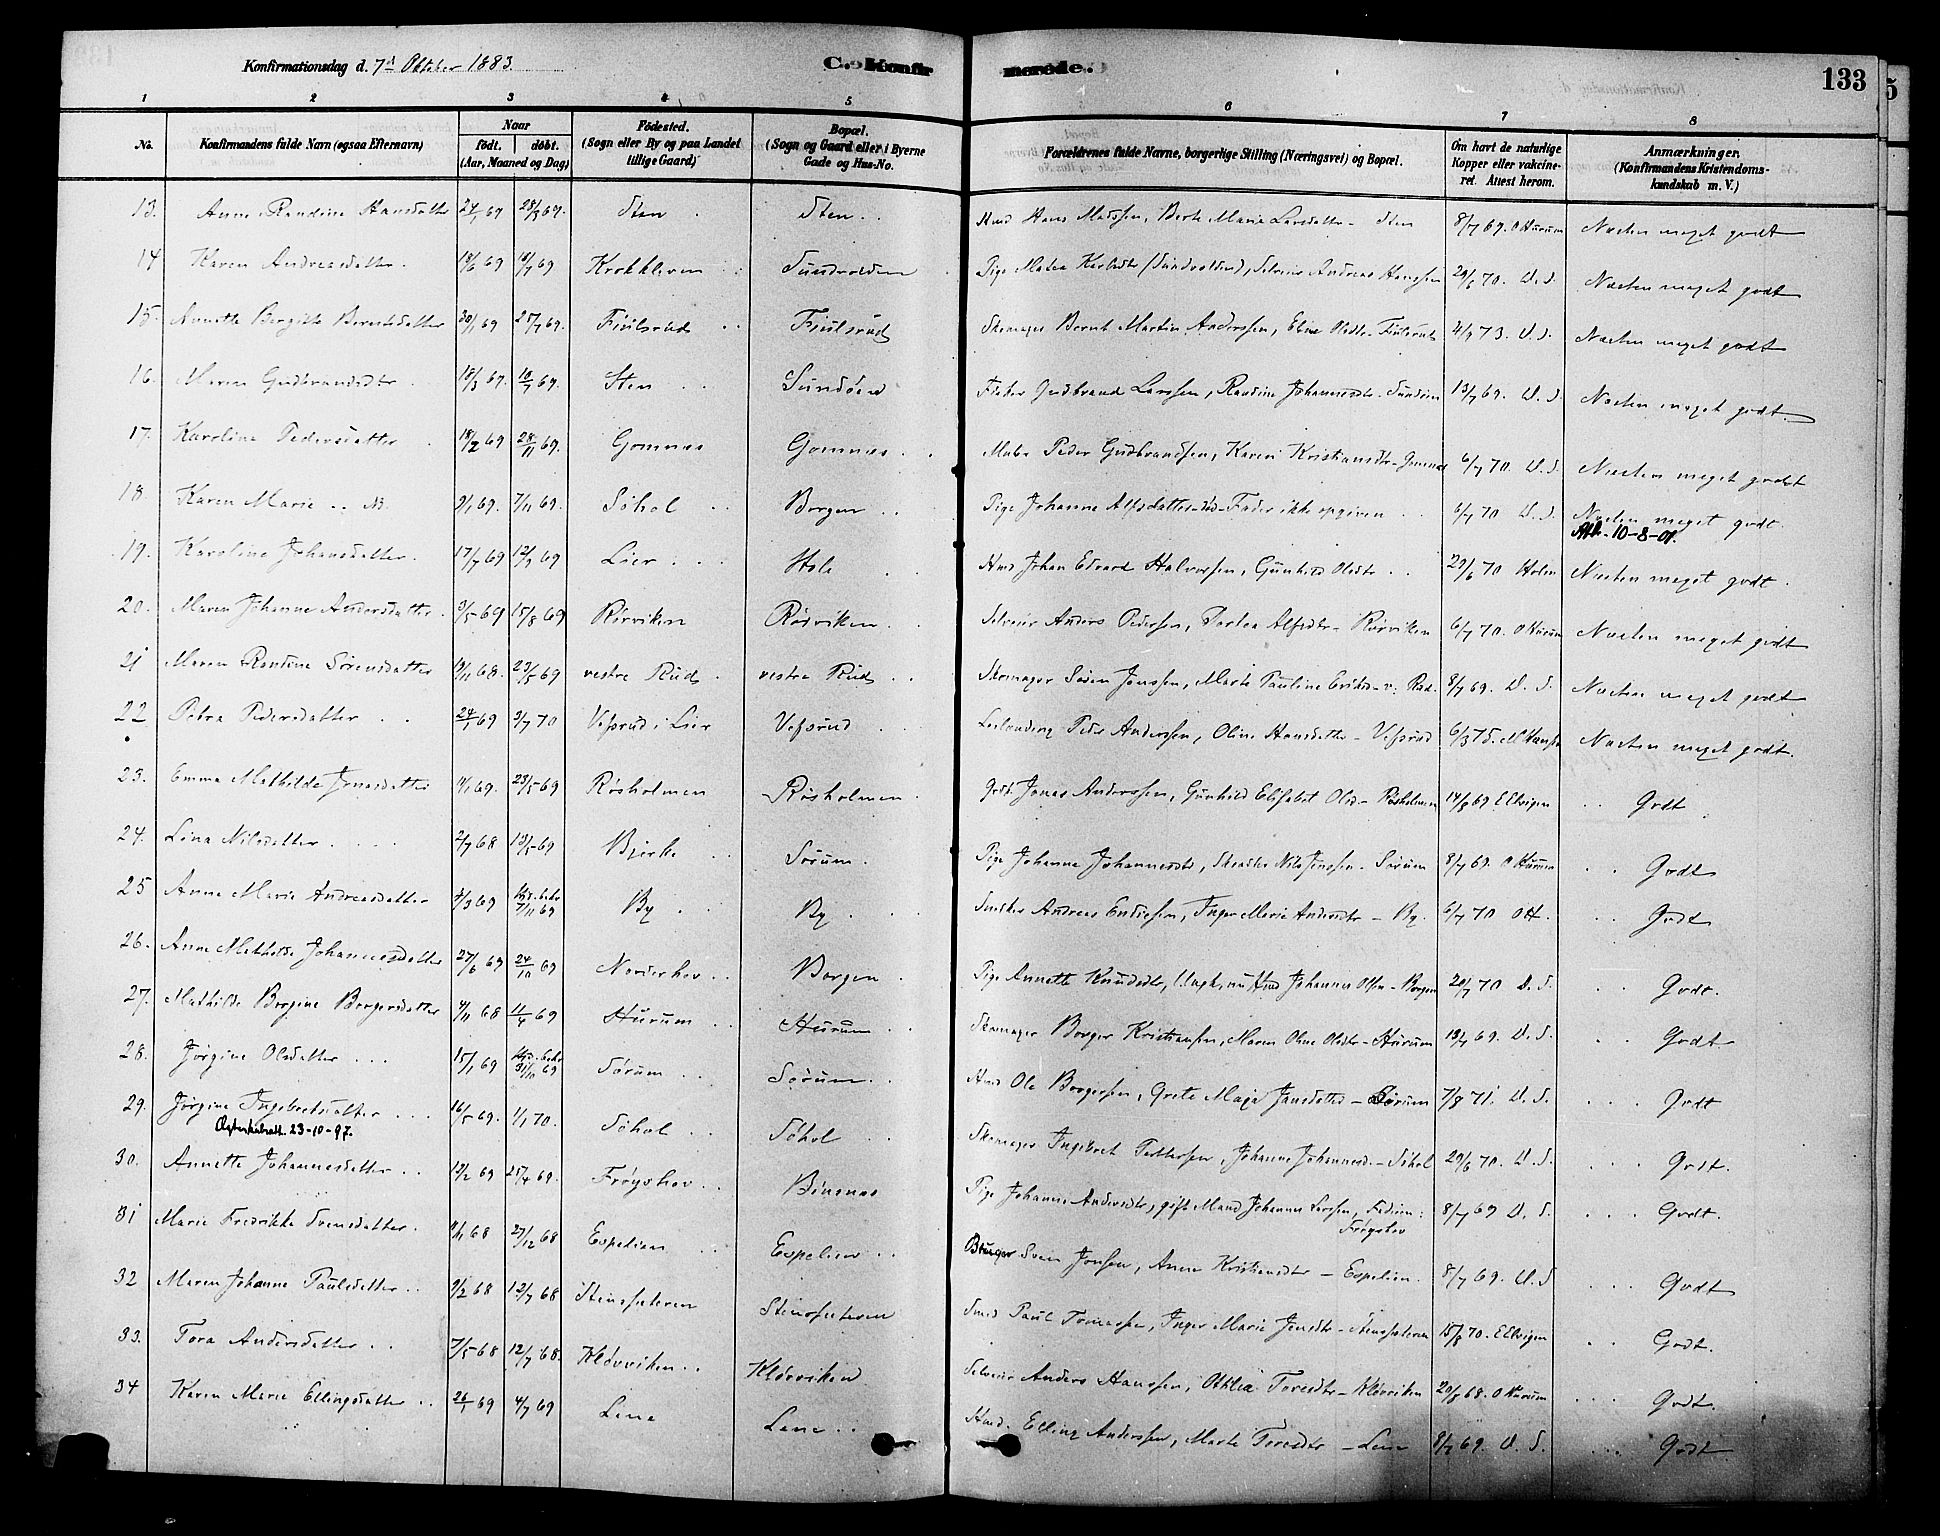 Konfirmationsdag d. 7d Oktober 1883. C. Konfirmerede. 133
1 2 3 4 5 6 7 8
No. Konfirmandens fulde Navn (ogsaa Efternavn) Naar født. døbt. (Aar, Maaned og Dag) Fødested. (Sogn eller By og paa Landet tillige Gaard) Bopæl. (Sogn og Gaard eller i Byerne Gade og Hus-No. Forældrenes fulde Navne, borgerlige Stilling (Næringsvei) og Bopæl. Om havt de naturlige Kopper eller vakcineret. Attest herom. Anmærkninger. (Konfirmandens Kristendomskundskab m. V.)
13. Anne Randine Hansdatter 24/1 69 28/3 69. Sten Sten Hmd Hans Madssen, Berte Marie Larsdatter - Sten 8/7 69. O Hurum Næsten meget godt
14 Karen Andreasdatter. 18/6 69 18/7 69 Krokkleven Sundvolden Pige Matea Karlsdtr (Sundvolden), Selveier Andreas Hanssen 29/6 70. D. S. Næsten meget godt
15. Annette Bergitte Berntsdatter 30/1 69 25/7 69. Fiulsrud Fiulsrud Skomager Bernt Martin Anderssen, Eline Olsdtr - Fiulsrud 4/7 73. D. S. Næsten meget godt
16. Maren Gudbrandsdtr 18/3 69. 18/7 69. Sten Sundøen Fisker Gudbrand Larssen, Randine Johannesdtr - Sundøen 13/7 69. D. S. Næsten meget godt.
17. Karoline Pedersdatter 18/2 69 28/11 69. Gomnæs Gomnæs Peder Gudbrandsen, Karen Kristiansdtr - Gomnæs 6/7 70 D. S. Næsten meget godt
18. Karen Marie 9/1 69. 7/11 69. Søhol Borgen Pige Johanne Alfsdatter - død - Fader ikke opgiven 6/7 70 D. S. Næsten meget godt.
10-8-01.
19. Karoline Johansdatter. 17/7 69 12/9 69 Lier Hole Hmd Johan Edvard Halvorsen, Gunhild Olsdtr 29/6 70 Holm Næsten meget godt.
20. Maren Johanne Andersdatter. 3/5 69 15/8 69 Rørviken Rørviken Selveier Anders Pedersen, Torlea Alfsdtr - Rørviken 6/7 70. O Hurum Næsten meget godt
21 Maren Randine Sørensdatter 19/11 68. 23/5 69 vestre Rud vestre Rud Skomager Søren Jonssen, Marte Pauline Eriksd - v. Rud. 8/7 69. D. S. Næsten meget godt
22 Petra Pedersdatter 24/1 69 3/7 70 Vefsrud i Lier Vefsrud Peder Anderssen, Oline Hansdatter - Vefsrud 6/3 75. Næsten meget godt.
23. Emma Mathilde Jonasdatter 11/1 69. 23/5 69 Røsholmen Røsholmen Jonas Anderssen, Gunhild Elisabet Olsd - Røsholmen 14/8 69 Ellvigen Godt
24. Lina Nilsdatter 2/7 68 13/5 69 Bjerke Sørum. Pige Johanne Johannesdtr, Skrædder Nils Jenssen - Sørum 8/7 69. O Hurum Godt
25 Anne Marie Andreasdatter 4/3 69 7/11 69 By By Snedker Andreas Endresen, Inger Marie Andersdtr - By. 6/7 70 O H. Godt
26. Anne Mathilde Johannesdatter 27/6 69 24/10 69 Norderhov Borgen Pige Annette Knudsdtr, Ungk., nu Hmd Johannes Olsen - Borgen 20/7 70 D. S. Godt.
27. Mathilde Borgine Borgersdatter 4/11 68 11/4 69 Hurum Hurum Skomager Borger Kristiansen, Maren Oline Olsdtr - Hurum 13/7 69. D. S. Godt
28. Jørgine Olsdatter 15/1 69 31/10 69 Sørum Sørum Hmd Ole Borgersen, Grete Maja Jansdatter - Sørum 7/8 71. D. S. Godt
29. Jørgine Ingebretsdatter 16/5 69. 1/1 70. Søhol Søhol Skomager Ingebret Pettersen, Johanne Johannesd - Søhol 29/6 70. D. S. Godt.
23-10-97.
30. Annette Johannesdatter 12/2 69 25/4 69. Frøyshov Bönsnæs Pige Johanne Andersdtr, gift Mand Johannes Larssen, Frøyshov 8/7 69 D. S. Godt.
31 Marie Fredrikke Svensdatter. 11/1 68 27/12 68 Espelien Espelien Bruger Sven Jonsen, Anne Kristiansdtr - Espelien. 8/7 69. D. S Godt
32 Maren Johanne Paulsdatter 9/2 68 12/7 68 Stensæteren Stensæteren Smed Paul Tomassen, Inger Marie Jensdtr - Stensæteren 15/8 70. Ellvigen Godt.
33. Tora Andersdatter 7/5 68 12/7 68. Kløvviken Kløvviken Selveier Anders Hanssen, Othlea Toresdtr - Kløvviken 20/8 68. O Hurum Godt.
34 Karen Marie Ellingsdatter 26/1 69 4/7 69 Lene Lene Hmd. Elling Anderssen, Marte Toresdtr - Lene 9/7 69. D. S. Godt